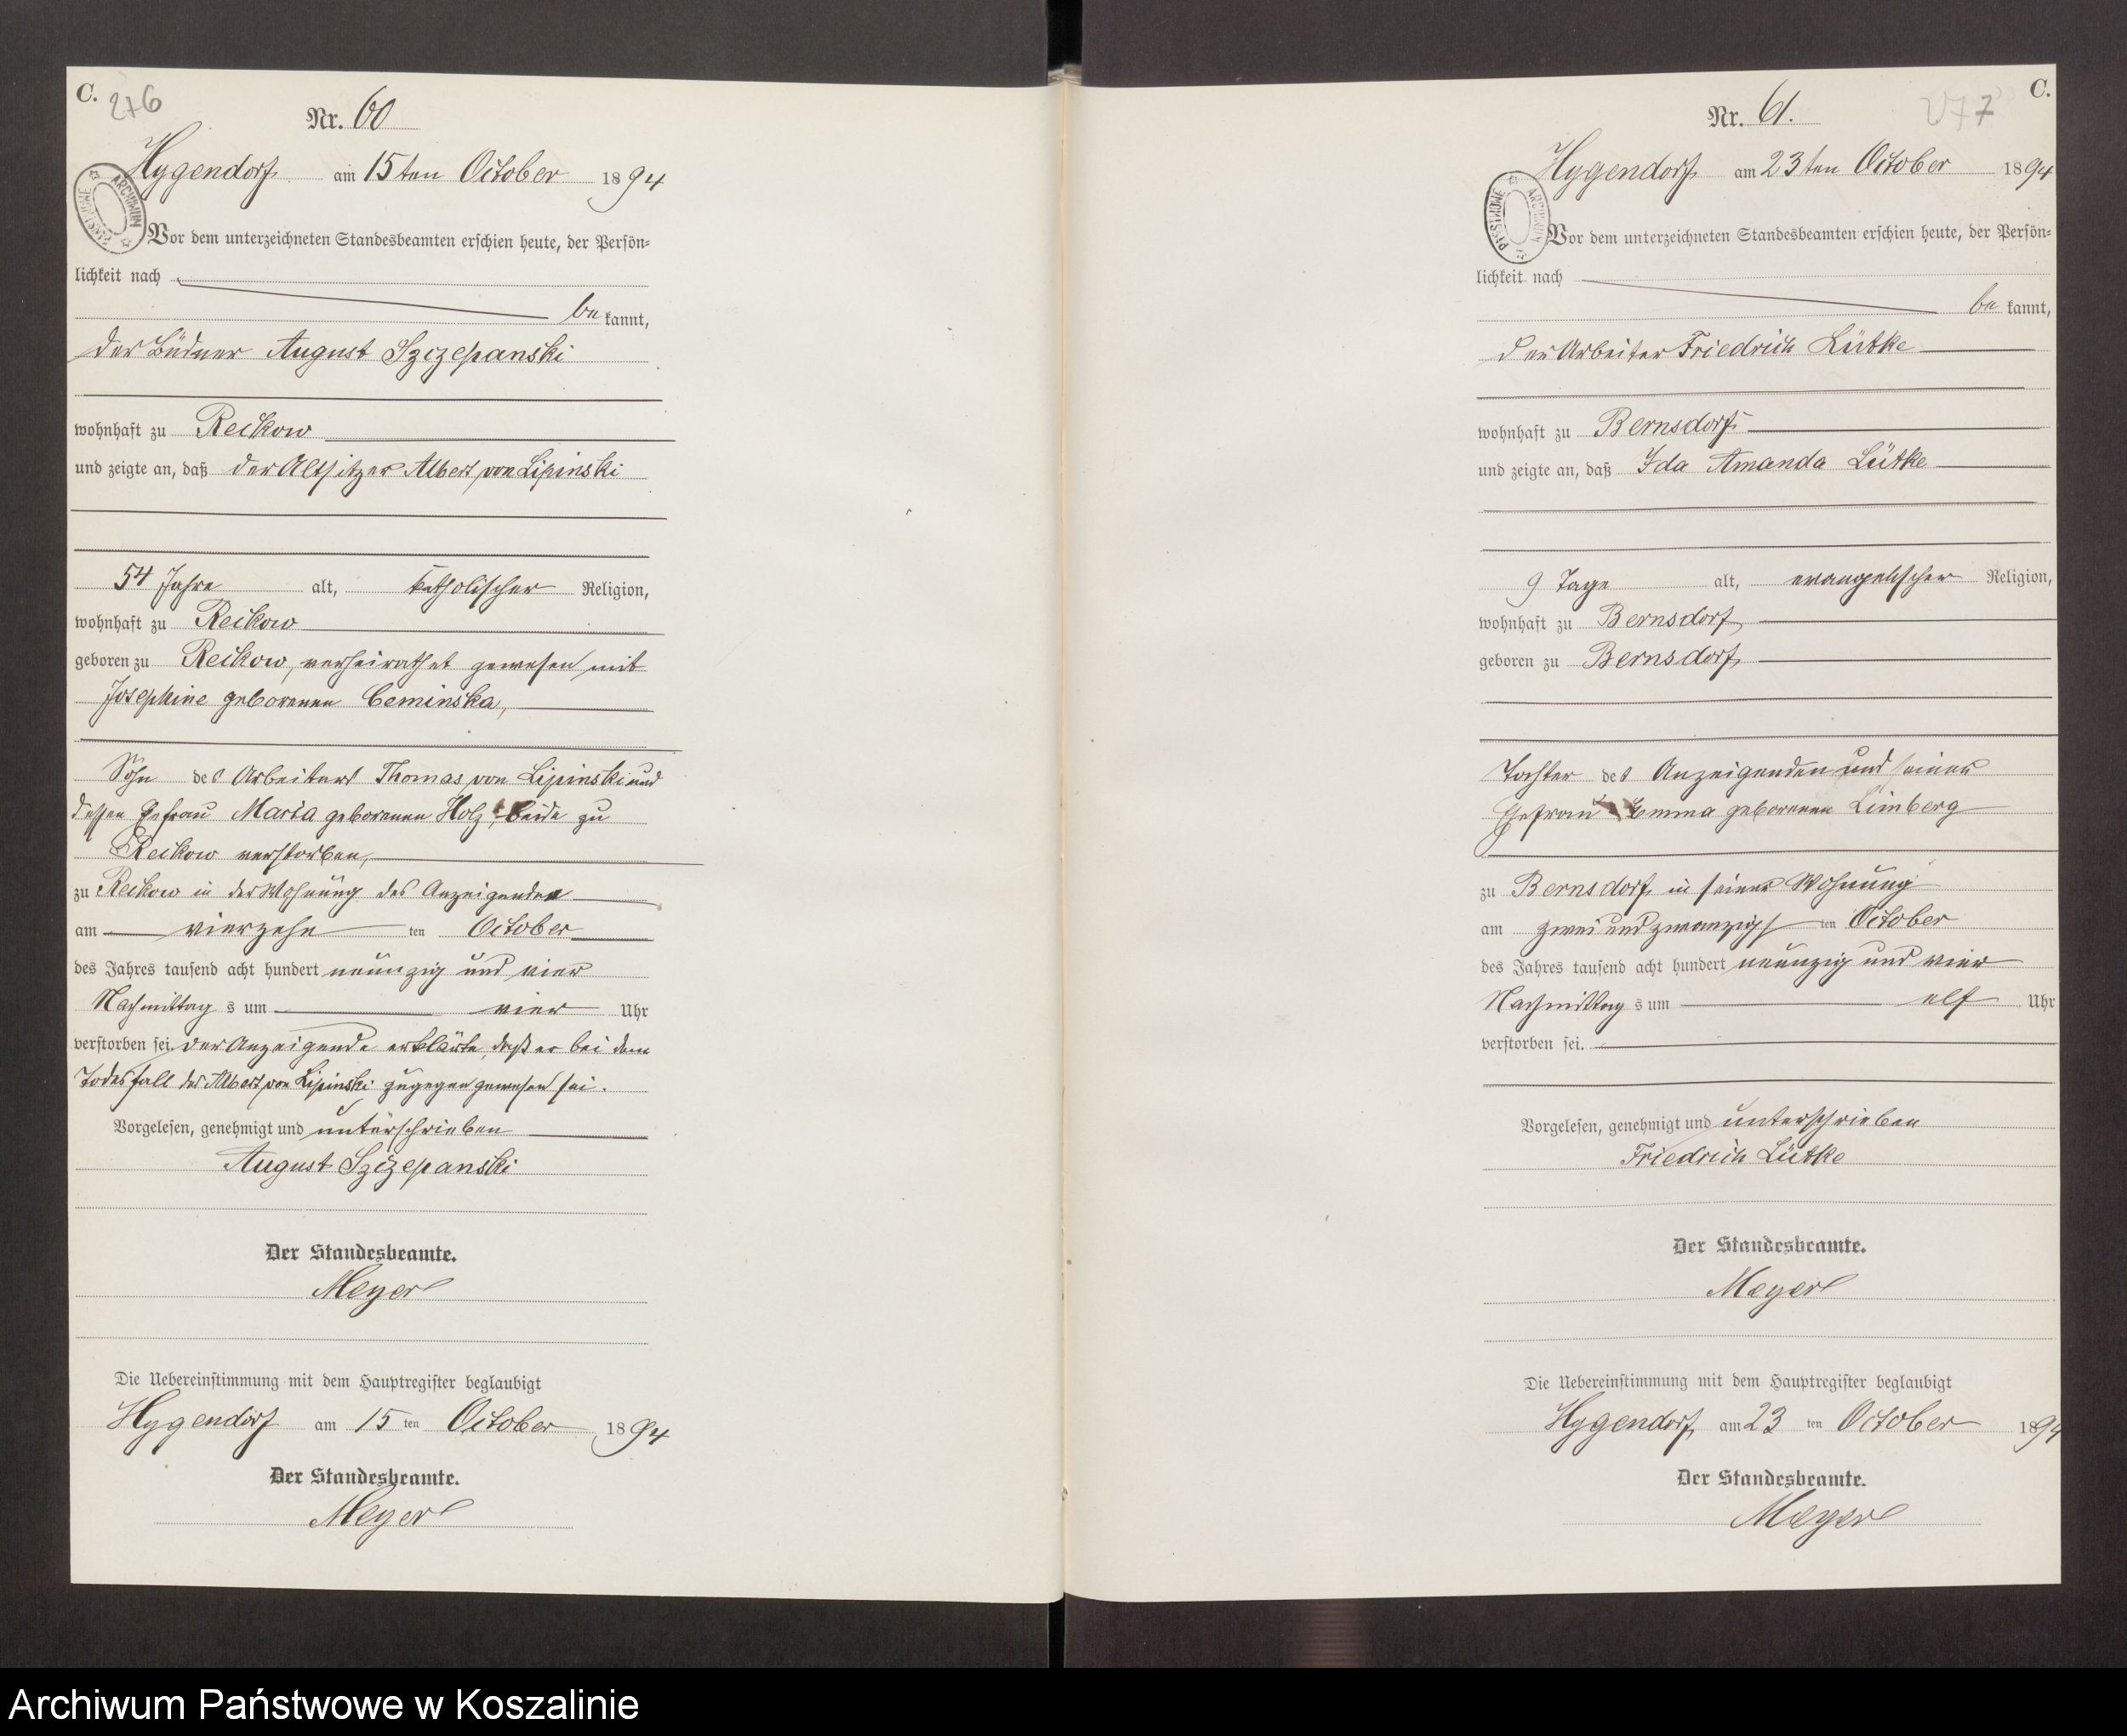 C.
276
Nr. 60
Hygendorf am 15ten October 1894
ARCHIWUM PAŃSTWOWE
Vor dem unterzeichneten Standesbeamten erschien heute, der Persön=
lichkeit nach
be kannt,
der Büdner August Szizepanski
wohnhaft zu Reckow
und zeigte an, daß der Altsitzer Albert von Lipinski
54 Jahre alt, katholischer Religion,
wohnhaft zu Reckow
geboren zu Reckow, verheirathet gewesen mit
Josephine geborenen Ceminska,
Sohn des Arbeiters Thomas von Lipinski und
dessen Ehefrau Maria geborenen Holz, beide zu
Reckow verstorben,
zu Reckow in der Wohnung des Anzeigenden
am vierzehn ten October
des Jahres tausend acht hundert neunzig und vier
Nachmittag s um vier Uhr
verstorben sei. Der Anzeigende erklärte, daß er bei dem
Todesfall des Albert von Lipinski zugegen gewesen sei.
Vorgelesen, genehmigt und unterschrieben
August Szizepanski
Der Standesbeamte.
Meyer
Die Uebereinstimmung mit dem Hauptregister beglaubigt
Hygendorf am 15 ten October 1894
Der Standesbeamte.
Meyer
C.
277
Nr. 61.
Hygendorf am 23ten October 1894
ARCHIWUM PAŃSTWOWE
Vor dem unterzeichneten Standesbeamten erschien heute, der Persön=
lichkeit nach
be kannt,
der Arbeiter Friedrich Lütke
wohnhaft zu Bernsdorf
und zeigte an, daß Ida Amanda Lütke
9 Tage alt, evangelischer Religion,
wohnhaft zu Bernsdorf,
geboren zu Bernsdorf,
Tochter des Anzeigenden und seiner
Ehefrau Emma geborenen Limberg
zu Bernsdorf, in seiner Wohnung
am zwei und zwanzigs ten October
des Jahres tausend acht hundert neunzig und vier
Nachmittag s um elf Uhr
verstorben sei.
Vorgelesen, genehmigt und unterschrieben
Friedrich Lütke
Der Standesbeamte.
Meyer
Die Uebereinstimmung mit dem Hauptregister beglaubigt
Hygendorf, am 23 ten October 1894
Der Standesbeamte.
Meyer
Archiwum Państwowe w Koszalinie